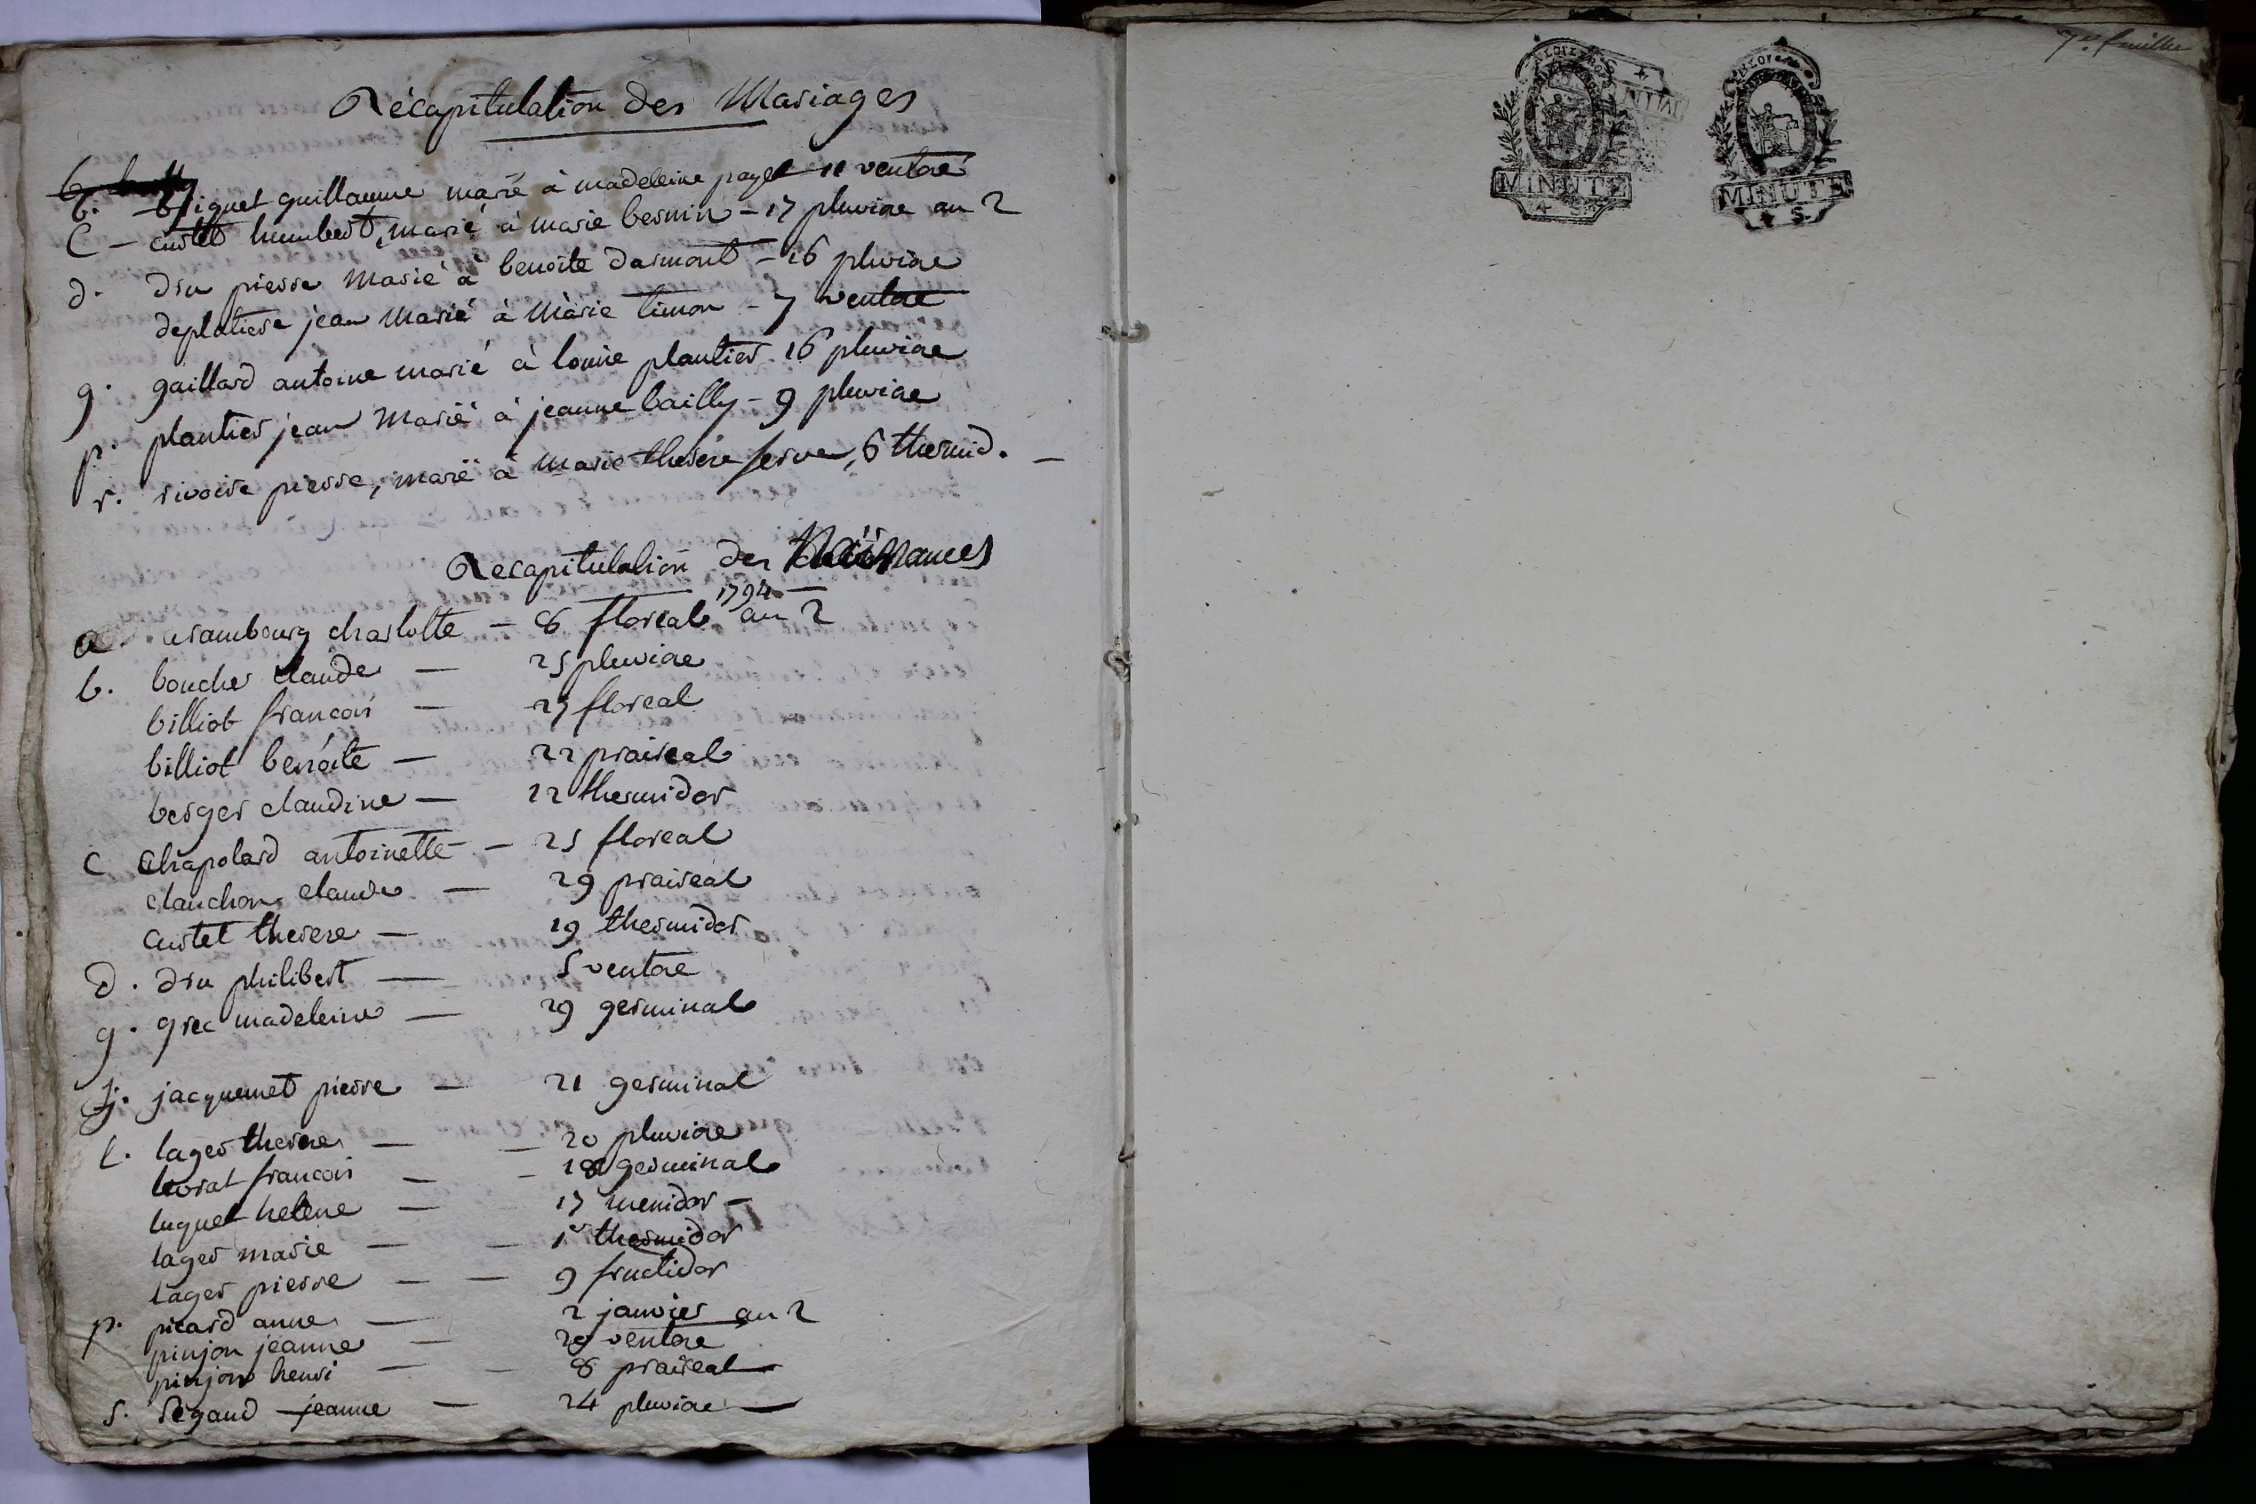 Récapitulation des Mariages
b. biguet guillaume marié à madeleine payet 11 ventose
C - curtet humbert, marié à marie bernin - 17 pluviose an 2
d. dru pierre marié à benoite darmont - 16 pluviose
deplatiere jean marié à marie timon - 7 ventose
g. gaillard antoine marié à louise plantier 16 pluviose
p. plantier jean marié à jeanne bailly - 9 pluviose
r. rivoire pierre, marié à marie therese serve, 6 thermid. -
Recapitulation des Naissances
1794
a. arambourg charlotte - 8 floreal an 2
b. boucher claude - 25 pluviose
billiot francois - 27 floreal
billiot benoite - 22 praireal
berger claudine - 12 thermidor
C chapolard antoinette - 25 floreal
clauchon claude - 29 praireal
curtet therese - 19 thermidor
d. dru philibert - 5 ventose
g. grec madeleine - 29 germinal
j. jacquemet pierre - 21 germinal
l. lager therese - 20 pluviose
livrat francois - 18 germinal
luquet helene - 17 messidor -
lager marie - 1er thermidor
lager pierre - 9 fructidor
p. picard anne - 2 janvier an 2
pinjon jeanne - 29 ventose
pinjon henri - 8 praireal
s. segaud jeanne - 24 pluviose
7e feuillet
MINUTE
MINUTE